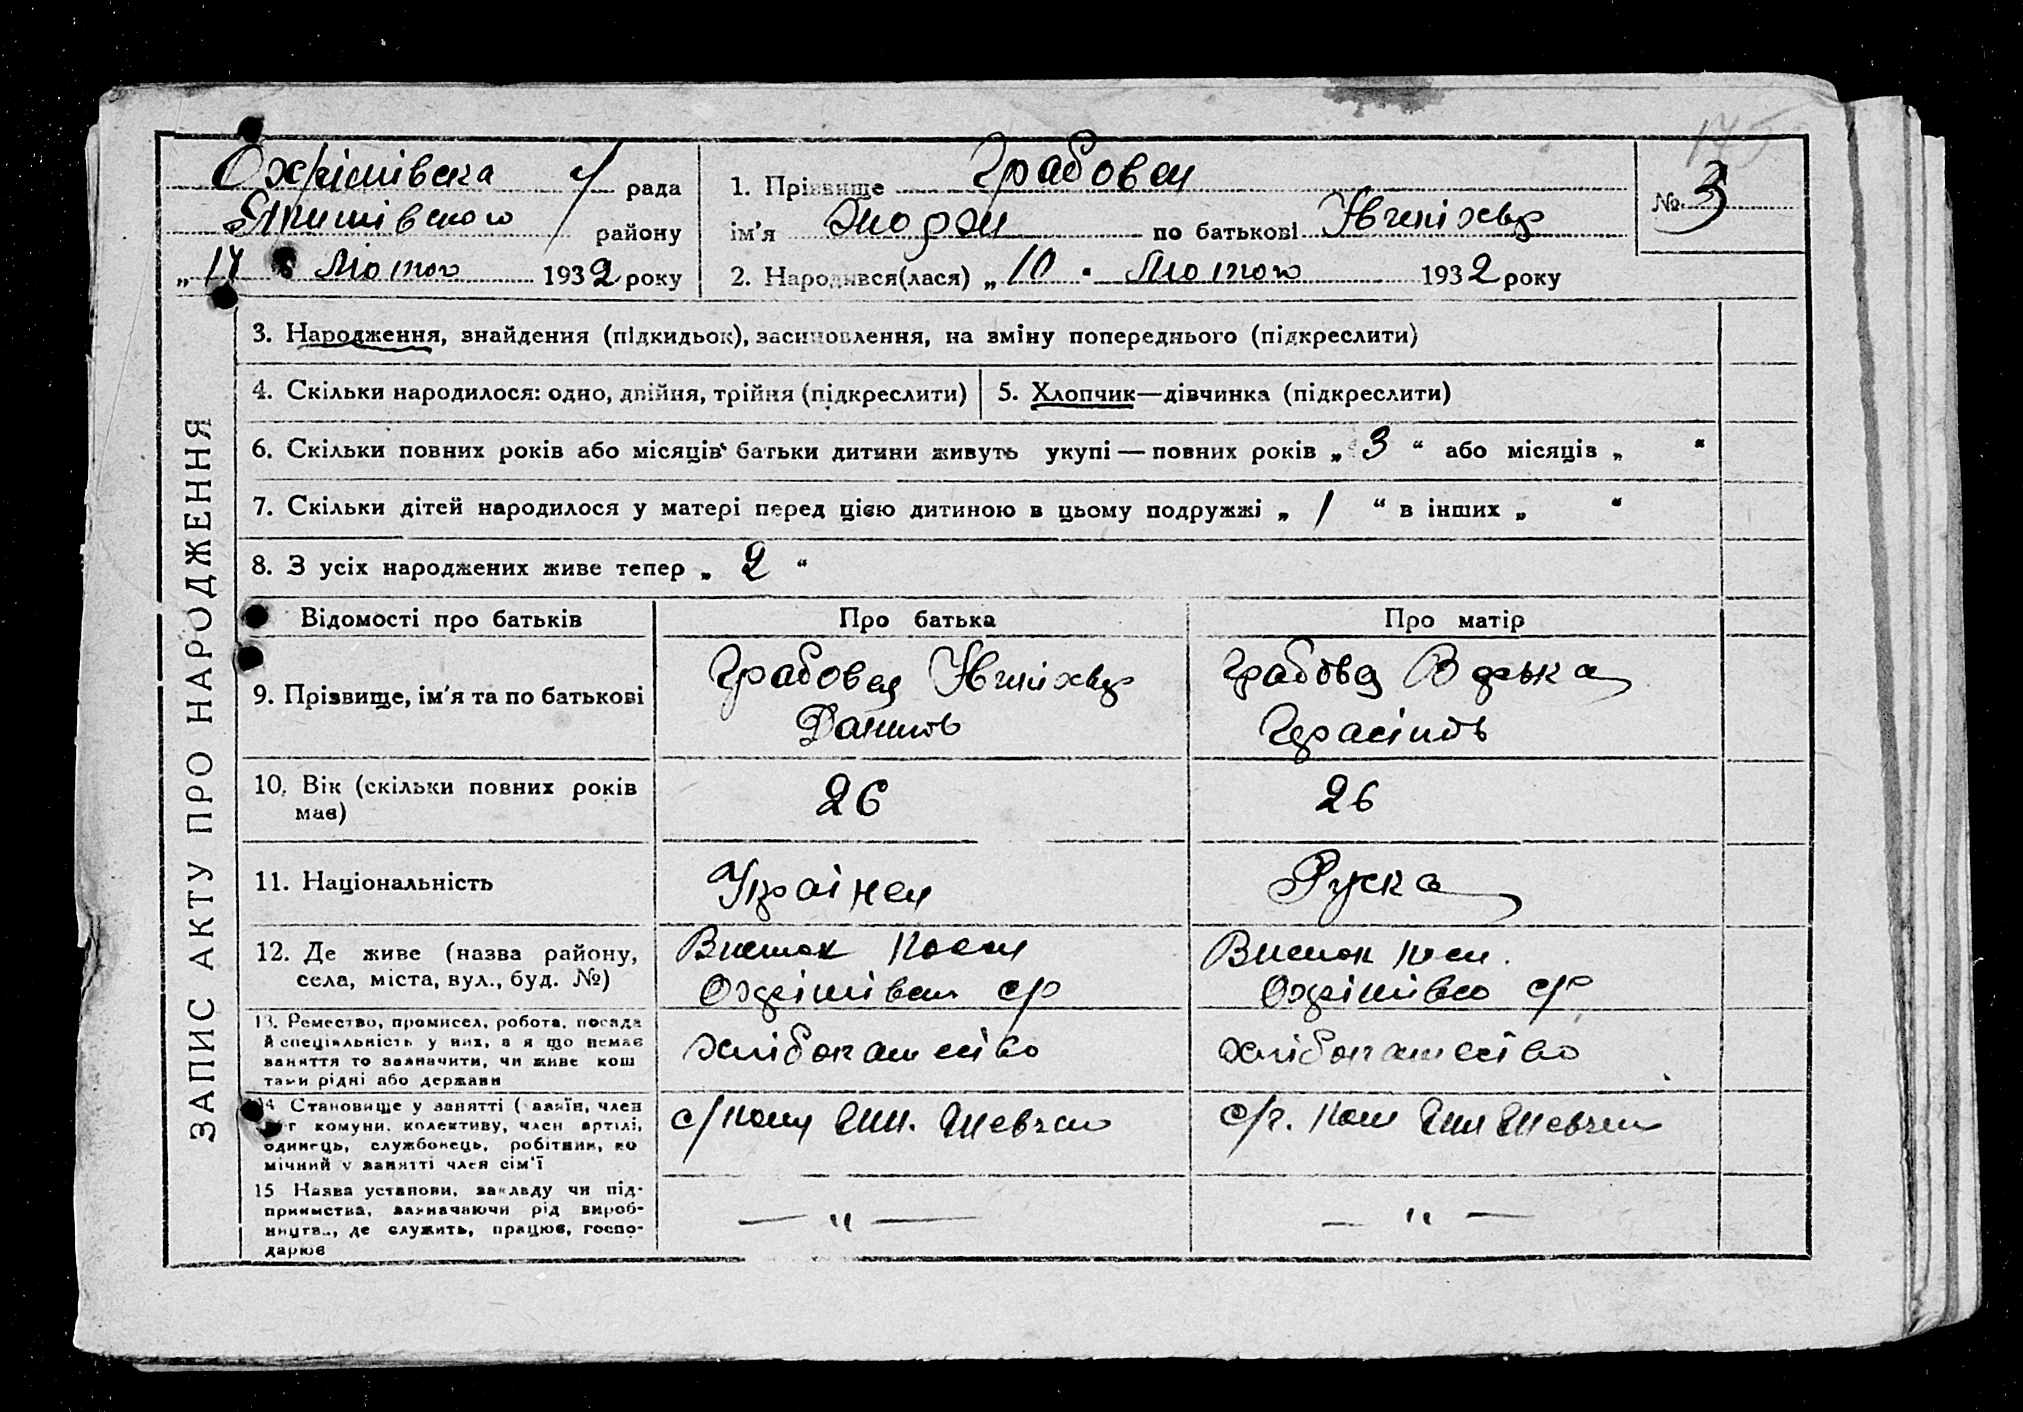 Охрімівска с/рада
Якимівского району
„ 14 " Лютого 1932 року
1. Прізвище Грабовец
ім'я по батькові
№ 3
2. Народився(лася) „ 10 " Лютого 1932 року
ЗАПИС АКТУ ПРО НАРОДЖЕННЯ
3. Народження, знайдения (підкидьок), засиновлення, на зміну попереднього (підкреслити)
4. Скільки народилося: одно, двійня, трійня (підкреслити)
5. Хлопчик—дівчинка (підкреслити)
6. Скільки повних років або місяців батьки дитини живуть укупі — повних років „ 3 “ або місяців „ “
7. Скільки дітей народилося у матері перед цією дитиною в цьому подружжі „ 1 “ в інших „ “
8. З усіх народжених живе тепер „ 2 “
Відомості про батьків
Про батька
Про матір
9. Прізвище, ім'я та по батькові
Грабовец
Данилов
Грабовец
Герасімов
10. Вік (скільки повних років
має)
26
26
11. Національність
Українец
Руска
12. Де живе (назва району,
села, міста, вул., буд. №)
Охрімівск с/р
Охрімівсо с/р
13. Ремество, промисел, робота, посада
й спеціяльність у них, а я що немає
заняття то зазначити, чи живе кош
тами рідні або держави
хліборашество
хліборашество
14 Становище у занятті ( азяїн, член
комуни, колективу, член артілі,
одинець, службовець, робітник, по
мічний у занятті член сім'ї
с/г ком ім. Шевчен
с/г. ком ім Шевчен
15 Назва установи, закладу чи під-
приємства, зазначаючи рід вироб-
ництв.., де служить, працює, госпо-
дарює
— " —
— " —